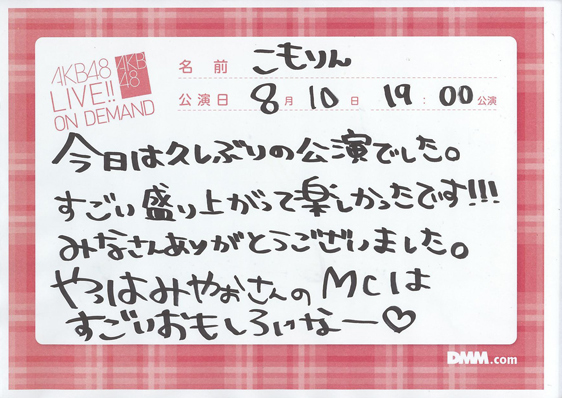 AKB48
LIVE!!
ON DEMAND
AKB
48
名前 こもりん
公演日 8月10日 19:00公演
今日は久しぶりの公演でした。
すごい盛り上がって楽しかったです!!!
みなさんありがとうございました。
やっはみやおさんのMCは
すごいおもしろいなー♡
DMM.com